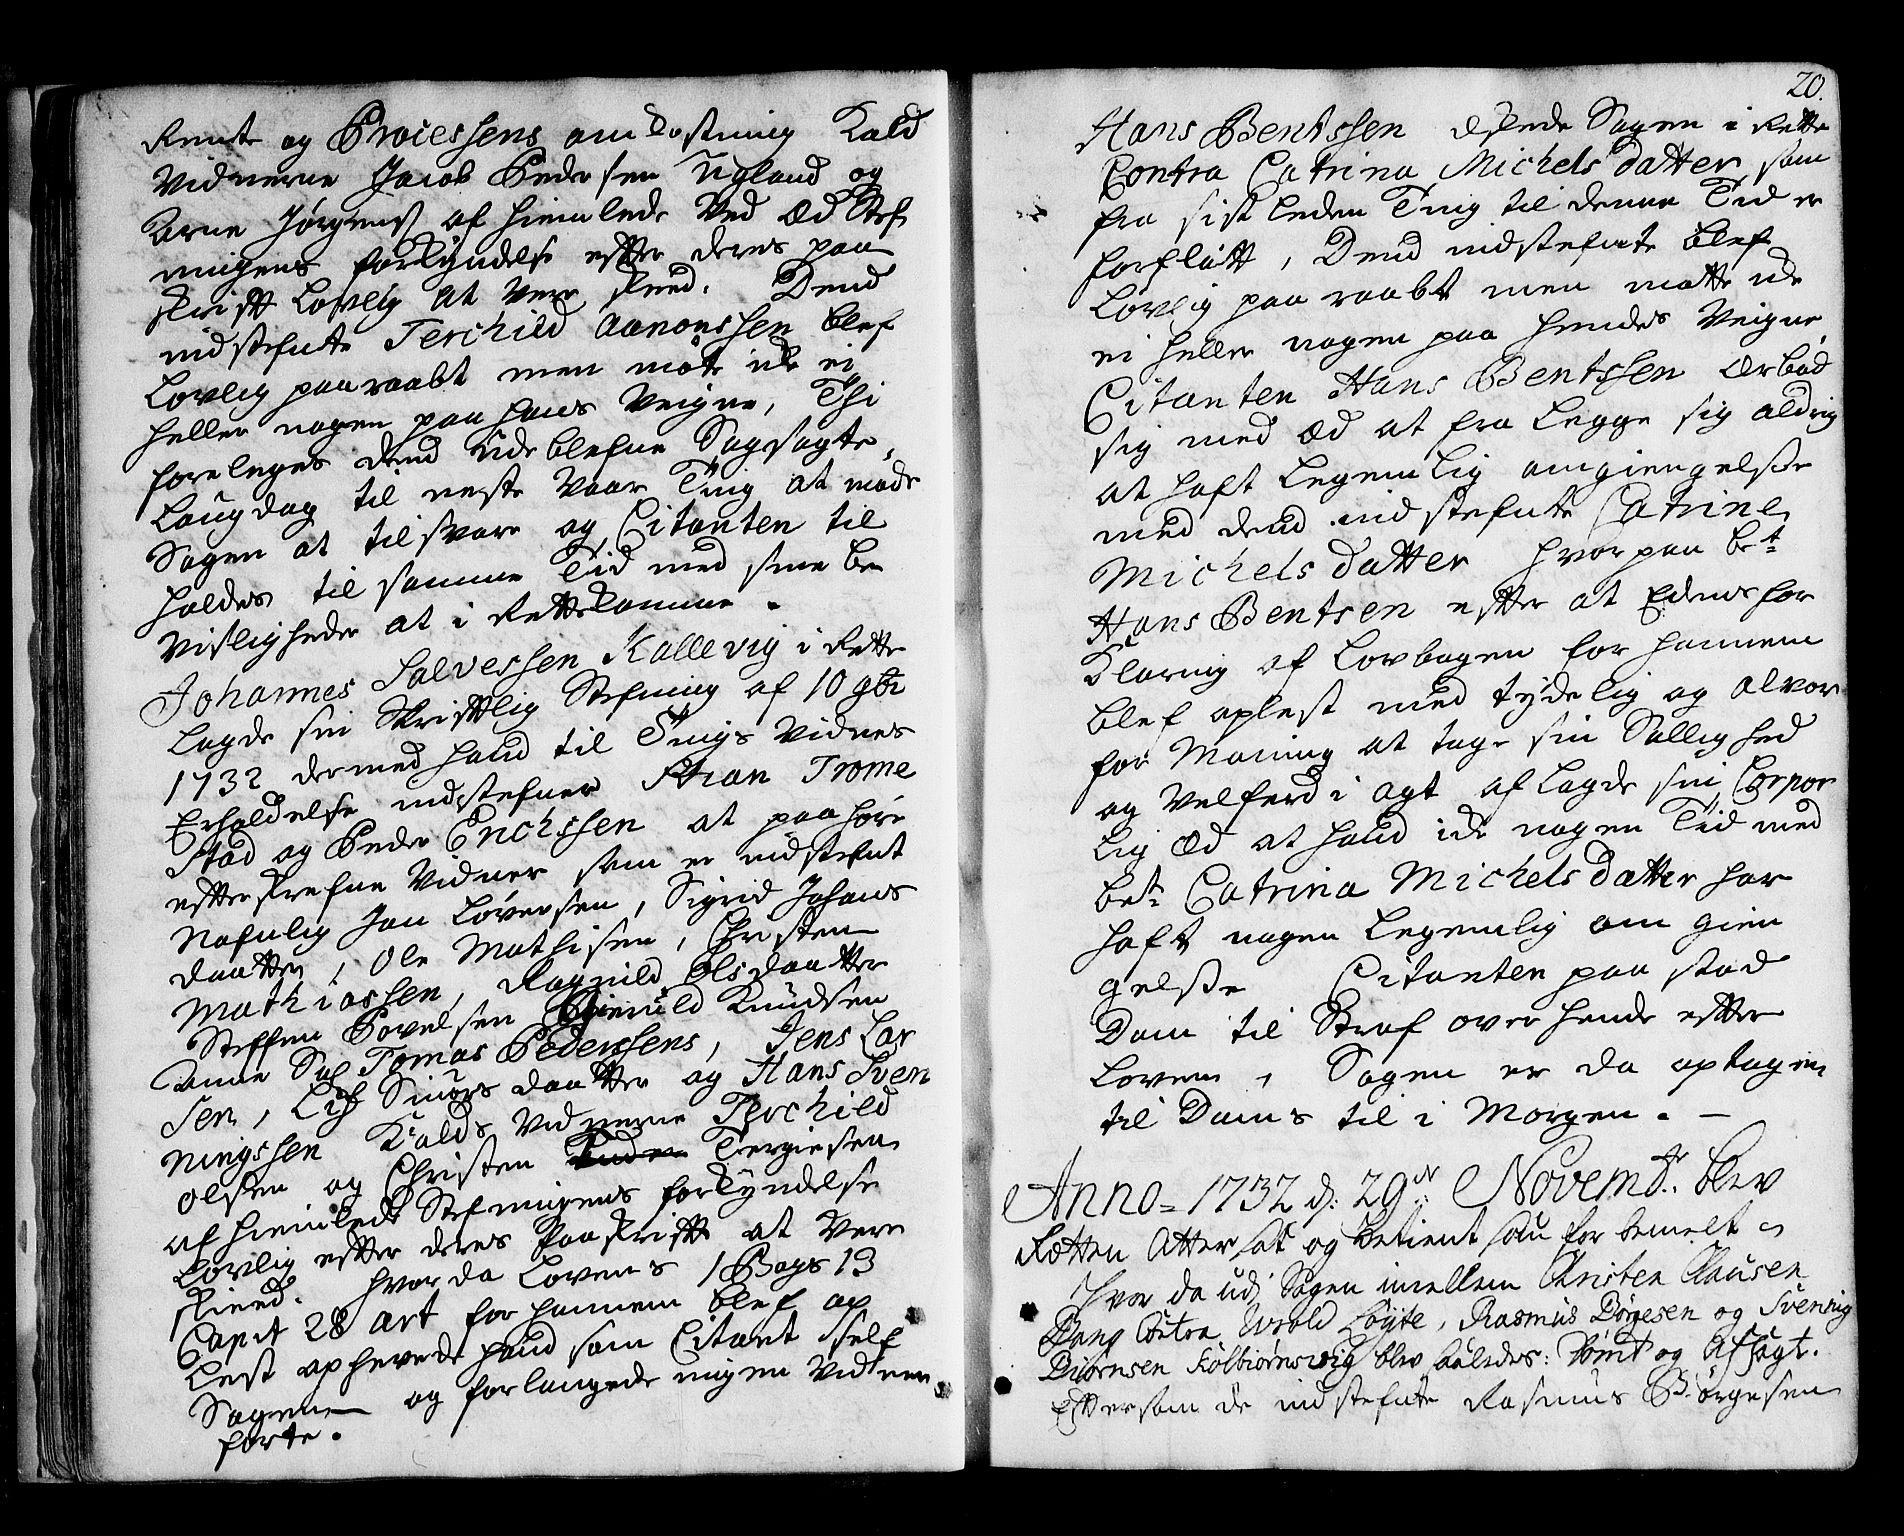 Rente og Processens omkostning Kald
Vidnerne Jacob Pedersen Ugland og
Arne Jørgens: af hiemlede Ved Æd Stef
ningens forkyndelse efter deres paa
skrift Lovlig at Vere skeed. Dend
indstefnte Terchild Aanonssen blef
Lovlig paaraabt men møte icke ei
heller nogen paa hans Veigne, Thi
foreleges dend udeblefne Sagsøgte
Laugdag til neste Vaar Ting at møde
Sagen at tilsvare og Citanten til
holdes til samme Tid med sine be
Visligheder at i Rettekomme.
Johannes Salvessen Kallevig i Rette
lagde sin Skrifftlig Stefning af 10 9br
1732 dermed hand til Tings Vidnes
Erholdelse indstefner Stian Trome
stad og Peder Erichssen at paahøre
efterskrefne Vidner som er indstefnt
Nafnlig Jon Løversen, Sigrid Johans
daatter, Ole Mathisen, Christen
Mathiassen, Ragnild Olsdaatter
Steffen Povelsen Gunild Knudsen
Anne Sal Tomas Pederssens, Jens Lar
sen, Lisf Siursdaatter og Hans Sven
ningssen Kalds Vidnerne Terchild
Olsen og Christen Tergiesen
af hiemlede Stefningens forkyndelse
Lovlig efter deres Paaskrift at Vere
skeed. hvor da Lovens 1 Bogs 13
Capit 28 Art for hannem blef op
Lest ophevede hand som Citant self
Sagen og forlangede ingen Vidnen
førte.
20.
Hans Bentssen Eskede Sagen i Rette
Contra Catrina Michelsdatter som
fra sist leden Ting til denne Tid er
forfløtt, Dend indstefnte blef
Lovlig paaraabt men møtte icke
ei heller nogen paa hendes Veigne
Citanten Hans Bentssen Erbød
sig med Æd at fra Legge sig aldrig
at haft Legemlig omgiengelsse
med dend indstefnte Catrine
Michelsdatter hvorpaa bet
Hans Bentsen efter at Edens for
Klaring af Lovbogen for hannem
blef oplest med tydelig og alvor
for Maning at tage sin Sallighed
og Velferd i agt aflagde sin Corpor
lig Æd at hand icke nogen Tiid med
bet Catrina Michelsdatter har
haft nogen Legemlig om gien
gelsse Citanten paa stod
Dom til Straf over hende efter
Loven, Sagen er da optagen
til Doms til i Morgen. —
Anno = 1732 d: 29de Novembr: blev
Retten Atter sat og betient som for bemelt =
Hvor da udj Sagen imellem Christen Clausen
Bang Contra Wrold Løyte, Rasmus Børgesen og Svennig
Biørnsen Kolbiørnsvig blev saaledes: Dømt og Afsagt.
Eftersom de indstefnte Rasmus Børgesen